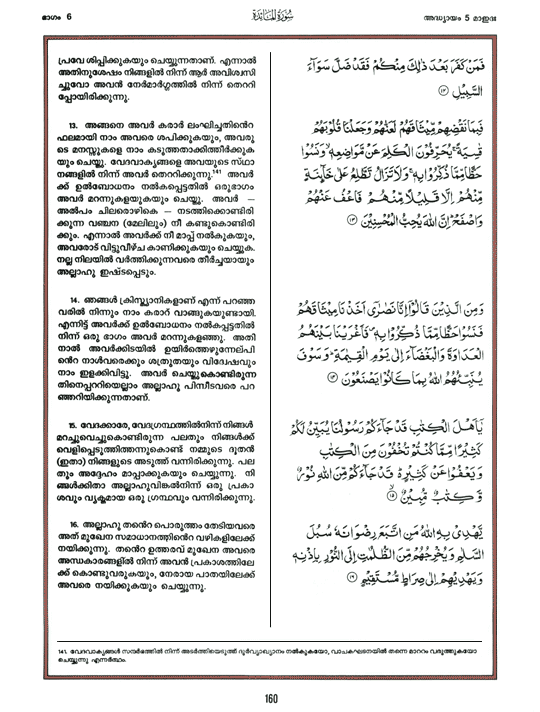 ഭാഗം 6
سُورَةُ المَائِدَة
അദ്ധ്യായം 5 മാഇദഃ
പ്രവേശിപ്പിക്കുകയും ചെയ്യുന്നതാണ്. എന്നാൽ
അതിനുശേഷം നിങ്ങളിൽ നിന്ന് ആർ അവിശ്വസി
ച്ചുവോ അവൻ നേർമാർഗ്ഗത്തിൽ നിന്ന് തെററി
പ്പോയിരിക്കുന്നു.
13. അങ്ങനെ അവർ കരാർ ലംഘിച്ചതിൻെറ
ഫലമായി നാം അവരെ ശപിക്കുകയും, അവരു
ടെ മനസ്സുകളെ നാം കടുത്തതാക്കിത്തീർക്കുക
യും ചെയ്തു. വേദവാക്യങ്ങളെ അവയുടെ സ്ഥാ
നങ്ങളിൽ നിന്ന് അവർ തെററിക്കുന്നു.141 അവർ
ക്ക് ഉൽബോധനം നൽകപ്പെട്ടതിൽ ഒരുഭാഗം
അവർ മറന്നുകളയുകയും ചെയ്തു. അവർ —
അൽപം ചിലരൊഴികെ — നടത്തിക്കൊണ്ടിരി
ക്കുന്ന വഞ്ചന (മേലിലും) നീ കണ്ടുകൊണ്ടിരി
ക്കും. എന്നാൽ അവർക്ക് നീ മാപ്പ് നൽകുകയും,
അവരോട് വിട്ടുവീഴ്ച കാണിക്കുകയും ചെയ്യുക.
നല്ല നിലയിൽ വർത്തിക്കുന്നവരെ തീർച്ചയായും
അല്ലാഹു ഇഷ്ടപ്പെടും.
14. ഞങ്ങൾ ക്രിസ്ത്യാനികളാണ് എന്ന് പറഞ്ഞ
വരിൽ നിന്നും നാം കരാർ വാങ്ങുകയുണ്ടായി.
എന്നിട്ട് അവർക്ക് ഉൽബോധനം നൽകപ്പട്ടതിൽ
നിന്ന് ഒരു ഭാഗം അവർ മറന്നുകളഞ്ഞു. അതി
നാൽ അവർക്കിടയിൽ ഉയിർത്തെഴുന്നേല്പി
ൻെറ നാൾവരെക്കും ശത്രുതയും വിദ്വേഷവും
നാം ഇളക്കിവിട്ടു. അവർ ചെയ്തുകൊണ്ടിരുന്ന
തിനെപ്പററിയെല്ലാം അല്ലാഹു പിന്നീടവരെ പറ
ഞ്ഞറിയിക്കുന്നതാണ്.
15. വേദക്കാരേ, വേദഗ്രന്ഥത്തിൽനിന്ന് നിങ്ങൾ
മറച്ചുവെച്ചുകൊണ്ടിരുന്ന പലതും നിങ്ങൾക്ക്
വെളിപ്പെടുത്തിത്തന്നുകൊണ്ട് നമ്മുടെ ദൂതൻ
(ഇതാ) നിങ്ങളുടെ അടുത്ത് വന്നിരിക്കുന്നു. പല
തും അദ്ദേഹം മാപ്പാക്കുകയും ചെയ്യുന്നു. നി
ങ്ങൾക്കിതാ അല്ലാഹുവിങ്കൽനിന്ന് ഒരു പ്രകാ
ശവും വ്യക്തമായ ഒരു ഗ്രന്ഥവും വന്നിരിക്കുന്നു.
16. അല്ലാഹു തൻെറ പൊരുത്തം തേടിയവരെ
അത് മുഖേന സമാധാനത്തിൻെറ വഴികളിലേക്ക്
നയിക്കുന്നു. തൻെറ ഉത്തരവ് മുഖേന അവരെ
അന്ധകാരങ്ങളിൽ നിന്ന് അവൻ പ്രകാശത്തിലേ
ക്ക് കൊണ്ടുവരുകയും, നേരായ പാതയിലേക്ക്
അവരെ നയിക്കുകയും ചെയ്യുന്നു.
فَمَنْ كَفَرَ بَعْدَ ذَٰلِكَ مِنكُمْ فَقَدْ ضَلَّ سَوَآءَ
السَّبِيلِ ١٢
فَبِمَا نَقْضِهِم مِّيثَاقَهُمْ لَعَنَّهُمْ وَجَعَلْنَا قُلُوبَهُمْ
قَسِيَةً يُحَرِّفُونَ الْكَلِمَ عَن مَّوَاضِعِهِ وَنَسُوا
حَظًّا مِّمَّا ذُكِّرُوا بِهِ وَلَا تَزَالُ تَطَّلِعُ عَلَىٰ خَآئِنَةٍ
مِّنْهُمْ إِلَّا قَلِيلًا مِّنْهُمْ فَاعْفُ عَنْهُمْ
وَاصْفَحْ إِنَّ اللَّهَ يُحِبُّ الْمُحْسِنِينَ ١٣
وَمِنَ الَّذِينَ قَالُوٓا إِنَّا نَصَٰرَىٰٓ أَخَذْنَا مِيثَاقَهُمْ
فَنَسُوا حَظًّا مِّمَّا ذُكِّرُوا بِهِ فَأَغْرَيْنَا بَيْنَهُمُ
الْعَدَاوَةَ وَالْبَغْضَآءَ إِلَىٰ يَوْمِ الْقِيَٰمَةِ وَسَوْفَ
يُنَبِّئُهُمُ اللَّهُ بِمَا كَانُوا يَصْنَعُونَ ١٤
يَٰٓأَهْلَ الْكِتَٰبِ قَدْ جَآءَكُمْ رَسُولُنَا يُبَيِّنُ لَكُمْ
كَثِيرًا مِّمَّا كُنتُمْ تُخْفُونَ مِنَ الْكِتَٰبِ
وَيَعْفُوا عَن كَثِيرٍ قَدْ جَآءَكُم مِّنَ اللَّهِ نُورٌ
وَكِتَٰبٌ مُّبِينٌ ١٥
يَهْدِي بِهِ اللَّهُ مَنِ اتَّبَعَ رِضْوَانَهُ سُبُلَ
السَّلَٰمِ وَيُخْرِجُهُم مِّنَ الظُّلُمَٰتِ إِلَى النُّورِ بِإِذْنِهِ
وَيَهْدِيهِمْ إِلَىٰ صِرَاطٍ مُّسْتَقِيمٍ ١٦
141. വേദവാക്യങ്ങൾ സന്ദർഭത്തിൽ നിന്ന് അടർത്തിയെടുത്ത് ദുർവ്യാഖ്യാനം നൽകുകയോ, വാചകഘടനയിൽ തന്നെ മാററം വരുത്തുകയോ
ചെയ്യുന്നു എന്നർത്ഥം.
160